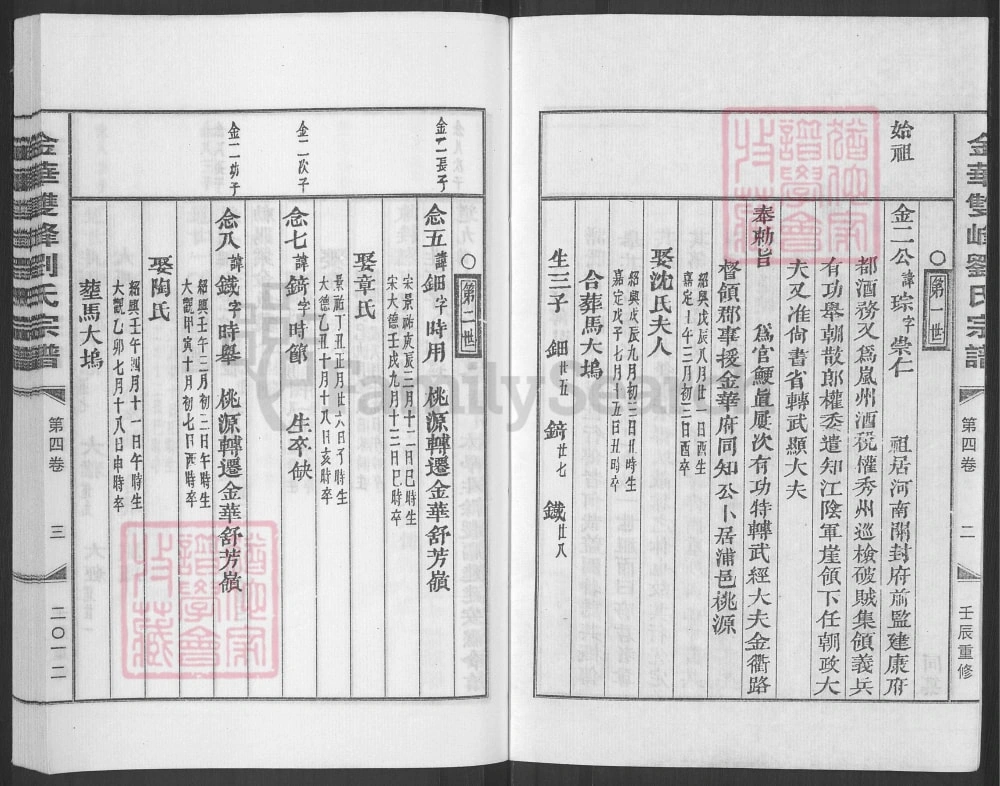 金華雙峰劉氏宗譜
第四卷
二
壬辰重修
始祖
○第一世
金二公諱琮字崇仁 祖居河南開封府前監建康府
都酒務又為嵐州酒稅權秀州巡檢破賊集領義兵
有功舉朝散郎權委遣知江陰軍崖領下任朝政大
夫又准尚書省轉武顯大夫
奉勅旨 為官鯁直屢次有功特轉武經大夫金衢路
督領郡事授金華府同知公卜居浦邑桃源
紹興戊辰八月廿一日酉生
嘉定丨午三月初三日酉卒
娶沈氏夫人
紹興戊辰九月初三日丑時生
嘉定戊子七月十五日丑時卒
合葬馬大塢
生三子 鈿廿五 錡廿七 鐵廿八
金二長子
○第二世
念五諱鈿字時用 桃源轉遷金華舒芳嶺
宋景祐庚辰三月十二日巳時生
宋大德壬戌九月十三日巳時卒
娶章氏
景祐丁丑正月廿六日子時生
大德乙丑十月十八日亥時卒
金二次子
念七諱錡字時節 生卒缺
金二幼子
念八諱鐵字時舉 桃源轉遷金華舒芳嶺
紹興壬午二月初二日午時生
大觀甲寅十月初七日酉時卒
娶陶氏
紹興壬午四月十一日午時生
大觀乙卯七月十八日申時卒
塟馬大塢
金華雙峰劉氏宗譜
第四卷
三
二〇一二
FamilySearch